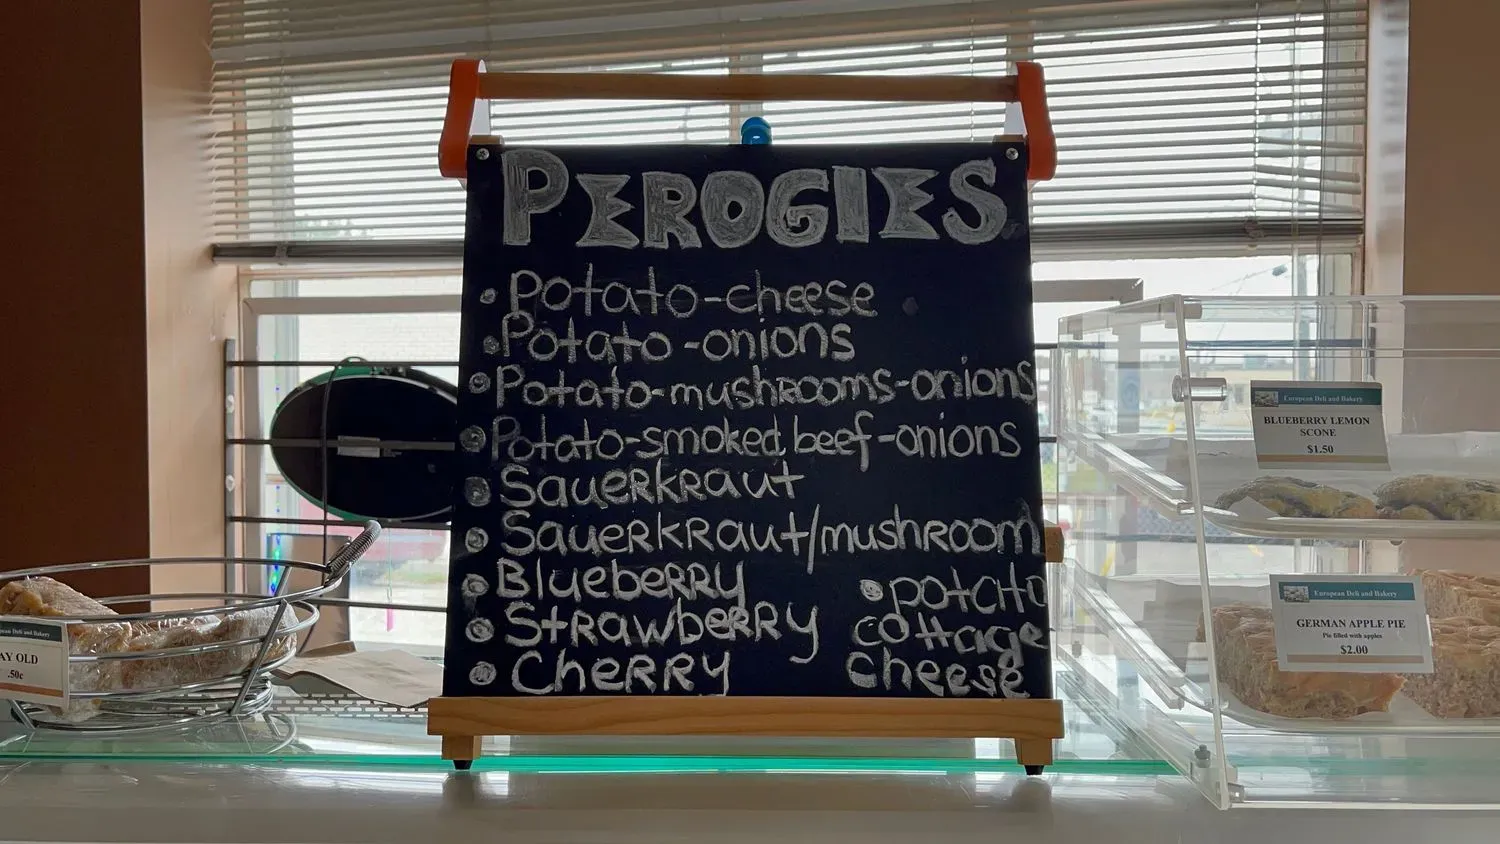 PEROGIES
• Potato-cheese
• Potato-onions
• Potato-mushrooms-onions
• Potato-smoked beef-onions
• Sauerkraut
• Sauerkraut/mushroom
• Blueberry
• Strawberry
• Cherry
• potato
cottage
cheese
AY OLD
.50c
European Deli and Bakery
BLUEBERRY LEMON
SCONE
$1.50
European Deli and Bakery
GERMAN APPLE PIE
Pie filled with apples
$2.00